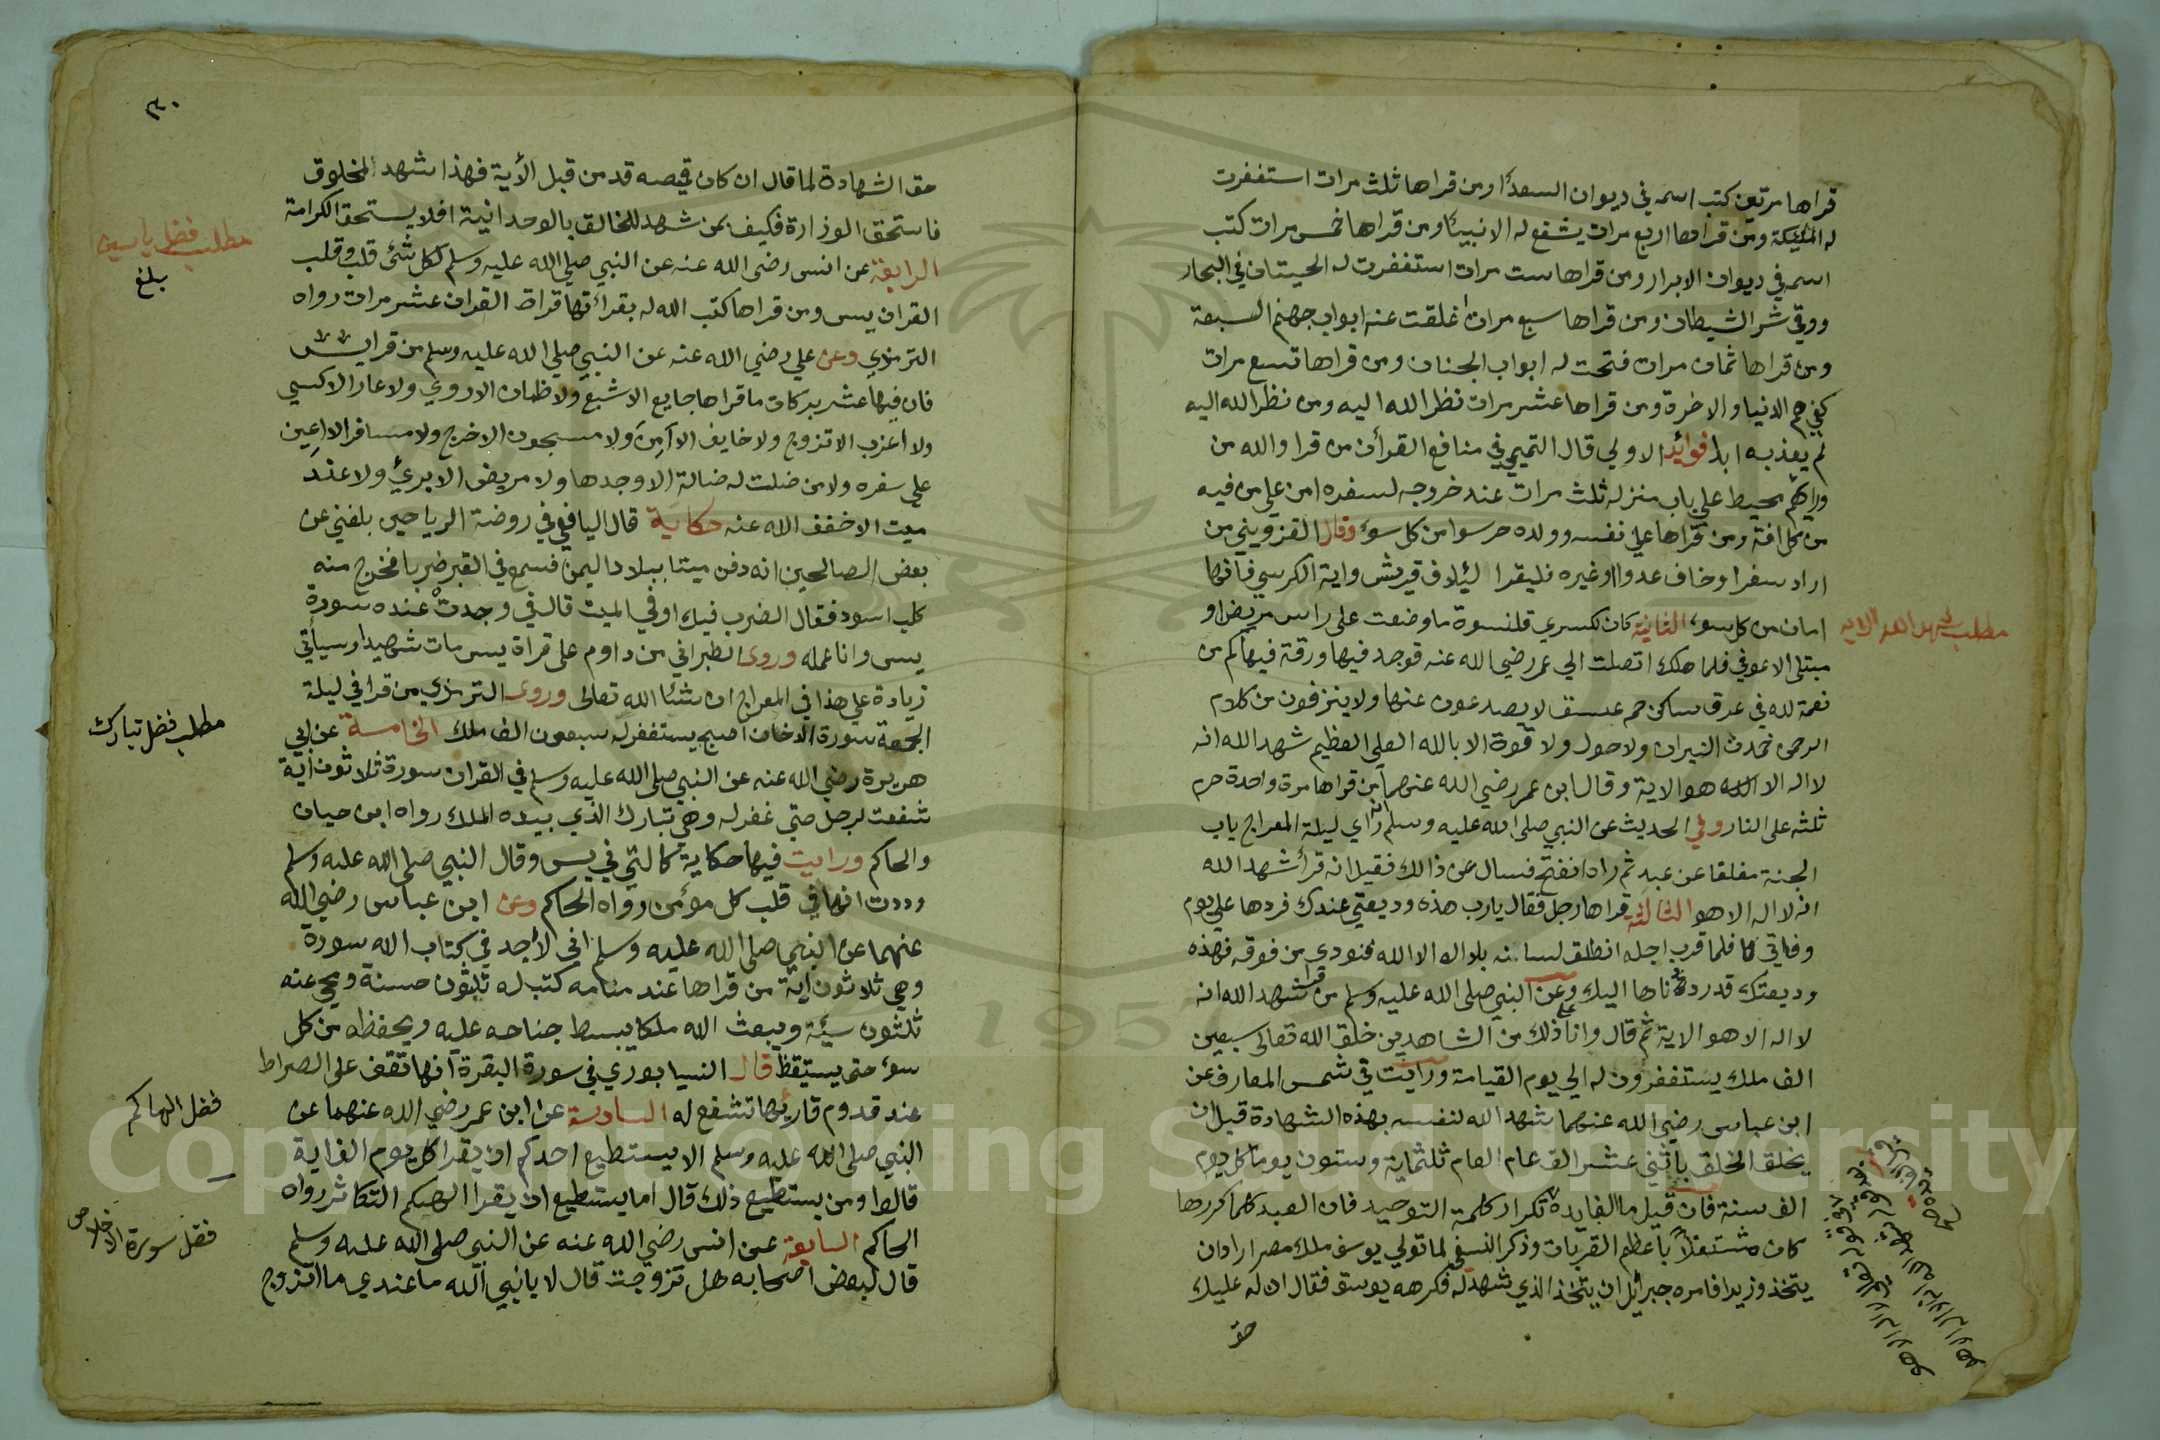 قراها مرتين كتب اسمه في ديوان السعدا ومن قراها ثلث مرات استغفرت
له الملئيكة ومن قراها اربع مرات يشفع له الانبيا ومن قراها خمس مرات كتب
اسمه في ديوان الابرار ومن قراها ست مرات استغفرت له الحيتان في البحار
ووقي شر الشيطان ومن قراها سبع مرات اغلقت عنه ابواب جهنم السبعة
ومن قراها ثمان مرات فتحت له ابواب الجنان ومن قراها تسع مرات
كفي هم الدنيا والاخرة ومن قراها عشر مرات نظر الله اليه ومن نظر الله اليه
لم يعذبه ابدا فوائد الاولي قال التميمي في منافع القرأن من قرا والله من
ورايهم محيط علي باب منزله ثلث مرات عند خروجه لسفره امن علي من فيه
من كل افة ومن قراها علي نفسه وولده حرسوا من كل سوء وقال القزويني من
اراد سفرا وخاف عدوا او غيره فليقرا لئيلاف قريش واية الكرسي فانها
امان من كل سوء الثانية كان لكسري قلنسوة ما وضعت علي راس مريض او
مبتلي الا عوفي فلما هلك اتصلت الي عمر رضي الله عنه فوجد فيها ورقة فيها كم من
نعمة لله في عرق ساكن حم عسق لا يصدعون عنها ولا ينزفون من كلام
الرحمن خمدت النيران ولا حول ولا قوة الا بالله العلي العظيم شهد الله انه
لا اله الا الله هو الاية وقال ابن عمر رضي الله عنهما من قراها مرة واحدة حرم
ثلثه علي النار وفي الحديث عن النبي صلى الله عليه وسلم انه راي ليلة المعراج باب
الجنة مغلقا عن عبد ثم راه انفتح فسال عن ذالك فقيل انه قرأ شهد الله
انه لا اله الا هو الثالثة قراها رجل فقال يارب هذه وديعتي عندك فردها علي يوم
وفاتي فلما قرب اجله انطلق لسانه بلا اله الا الله فنودي من فوقه فهذه
وديعتك قد رددناها اليك وعن النبي صلى الله عليه وسلم من قرا شهد الله انه
لا اله الا هو الاية ثم قال وانا علي ذلك من الشاهدين خلق الله تعالى سبعين
الف ملك يستغفرون له الي يوم القيامة ورايت في شمس المعارف عن
ابن عباس رضي الله عنهما شهد الله لنفسه بهذه الشهادة قبل ان
يخلق الخلق باثني عشر الف عام العام ثلثماية وستون يوما كل يوم
الف سنة فان قيل ما الفايدة تكرار كلمة التوحيد فان العبد كلما كررها
كان مشتغلا باعظم القربات وذكر النسفي لما تولي يوسف ملك مصر اراد ان
يتخذ وزيرا فامره جبرائل ان يتخذ الذي شهد له فكرهه يوسف فقال ان له عليك
حق
مطلب شهد الله الاية
٣٠
حق الشهادة لما قال ان كان قميصه قد من قبل الأية فهذا شهد المخلوق
فاستحق الوزارة فكيف بمن شهد للخالق بالوحدانية افلا يستحق الكرامة
الرابعة عن انس رضى الله عنه عن النبي صلى الله عليه وسلم لكل شئ قلب وقلب
القران يس ومن قراها كتب الله له بقرائتها قراة القران عشر مرات رواه
الترمذي وعن علي رضي الله عنه عن النبي صلى الله عليه وسلم من قرا يس
فان فيها عشر بركات ما قراها جايع الا شبع ولا ظمان الا روي ولا عار الا كسي
ولا اعزب الا تزوج ولا خايف الا امن ولا مسجون الا خرج ولا مسافر الا اعين
علي سفره ولا من ضلت له ضالة الا وجدها ولا مريض الا برئ ولا عند
ميت الا خفف الله عنه حكاية قال اليافعي في روضة الرياحين بلغني عن
بعض الصالحين انه دفن ميتا ببلاد اليمن فسمع في القبر ضربا فخرج منه
كلب اسود فقال الضرب فيك او في الميت قال في وجدت عنده سورة
يس وانا عمله وروى الطبراني من داوم علي قراة يس مات شهيدا وسيأتي
زيادة علي هذا في المعراج ان شاء الله تعالى وروى الترمذي من قرا في ليلة
الجمعة سورة الدخان اصبح يستغفر له سبعون الف ملك الخامسة عن ابي
هريرة رضي الله عنه عن النبي صلى الله عليه وسلم في القران سورة ثلاثون اية
شفعت لرجل حتي غفر له وهي تبارك الذي بيده الملك رواه ابن حبان
والحاكم ورايت فيها حكاية كالتي في يس وقال النبي صلى الله عليه وسلم
وددت انها في قلب كل مؤمن رواه الحاكم وعن ابن عباس رضي الله
عنهما عن النبي صلى الله عليه وسلم اني لأجد في كتاب الله سورة
وهي ثلاثون اية من قراها عند منامه كتب له ثلثون حسنة ومحي عنه
ثلثون سيئة ويبعث الله ملكا يبسط جناحه عليه ويحفظه من كل
سوء حتى يستيقظ قال النسيابوري في سورة البقرة انها تقف على الصراط
عند قدوم قاريها تشفع له السادسة عن ابن عمر رضي الله عنهما عن
النبي صلى الله عليه وسلم الا يستطيع احدكم ان يقرا كل يوم الف اية
قالوا ومن يستطيع ذلك قال اما يستطيع ان يقرا الهيكم التكاثر رواه
الحاكم السابعة عن انس رضي الله عنه عن النبي صلى الله عليه وسلم
قال لبعض اصحابه هل تزوجت قال لا يا نبي الله ما عندي ما اتزوج
مطلب فضل ياسين
بلغ
مطلب فضل تبارك
فضل الهاكم
فضل سورة الاخلاص
1957
Copyright © King Saud University